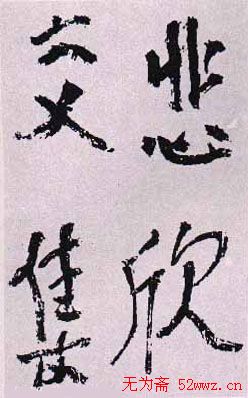 悲欣
交集
无为斋 52wwz.cn